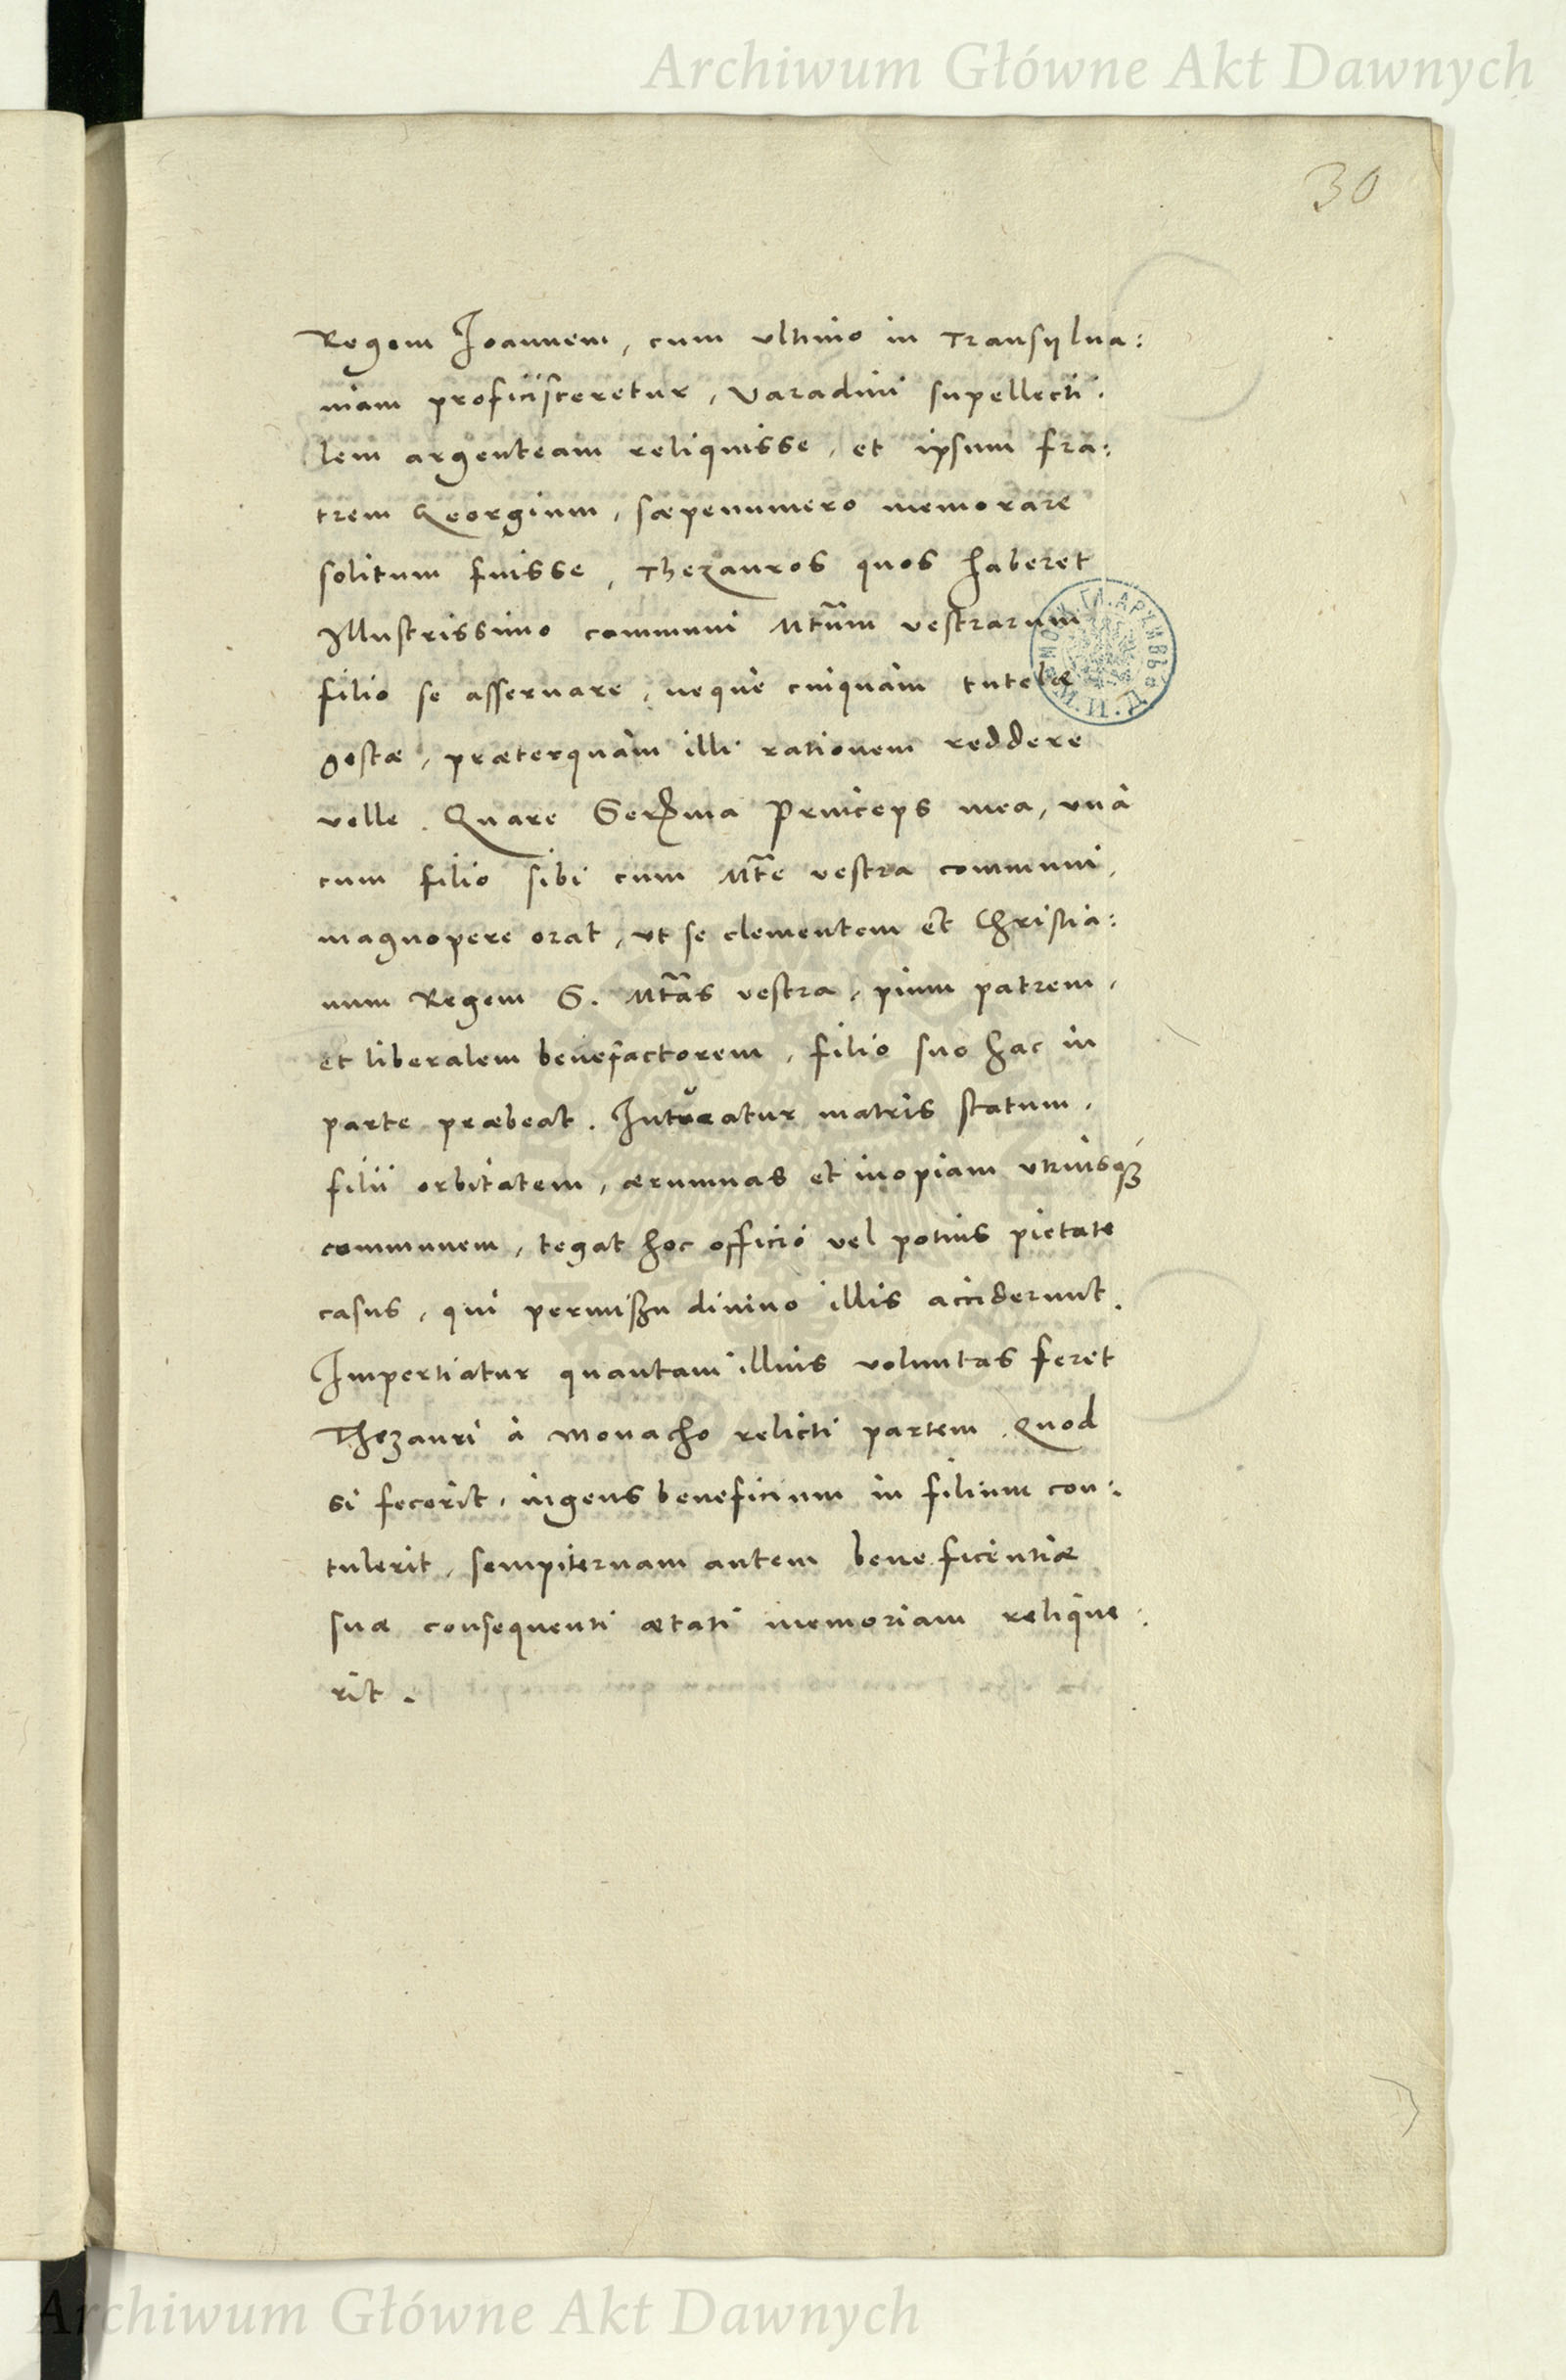 Archiwum Główne Akt Dawnych
30
Regem Joannem, cum ultimo in Transÿlua:
niam proficisceretur, Varadini supellecti:
lem argenteam reliquisse, et ipsum fra:
trem Georgium, sæpenumero memorare
solitum fuisse, Thezauros quos haberet
Illustrissimo communi Mtūm vestrarum
filio se asseruare, neque cuiquam tutelæ
gestæ, præterquàm illi rationem reddere
velle. Quare Serma Princeps mea, vnà
cum filio sibi cum Mte vestra communi,
magnopere orat, vt se clementem et Christia:
num Regem S. Mtas vestra, pium patrem,
et liberalem benefactorem, filio suo hac in
parte præbeat. Intueatur matris statum,
filii orbitatem, ærumnas et inopiam vtriusqȝ
communem, tegat hoc officio vel potius pietate
casus, qui permißu diuino illis acciderunt.
Impertiatur quantam illius voluntas feret
Thezauri à Monacho relicti partem. Quod
si fecerit, ingens beneficium in filium con:
tulerit, sempiternam autem beneficentiæ
suæ consequenti ætati memoriam relique:
rit.
Archiwum Główne Akt Dawnych